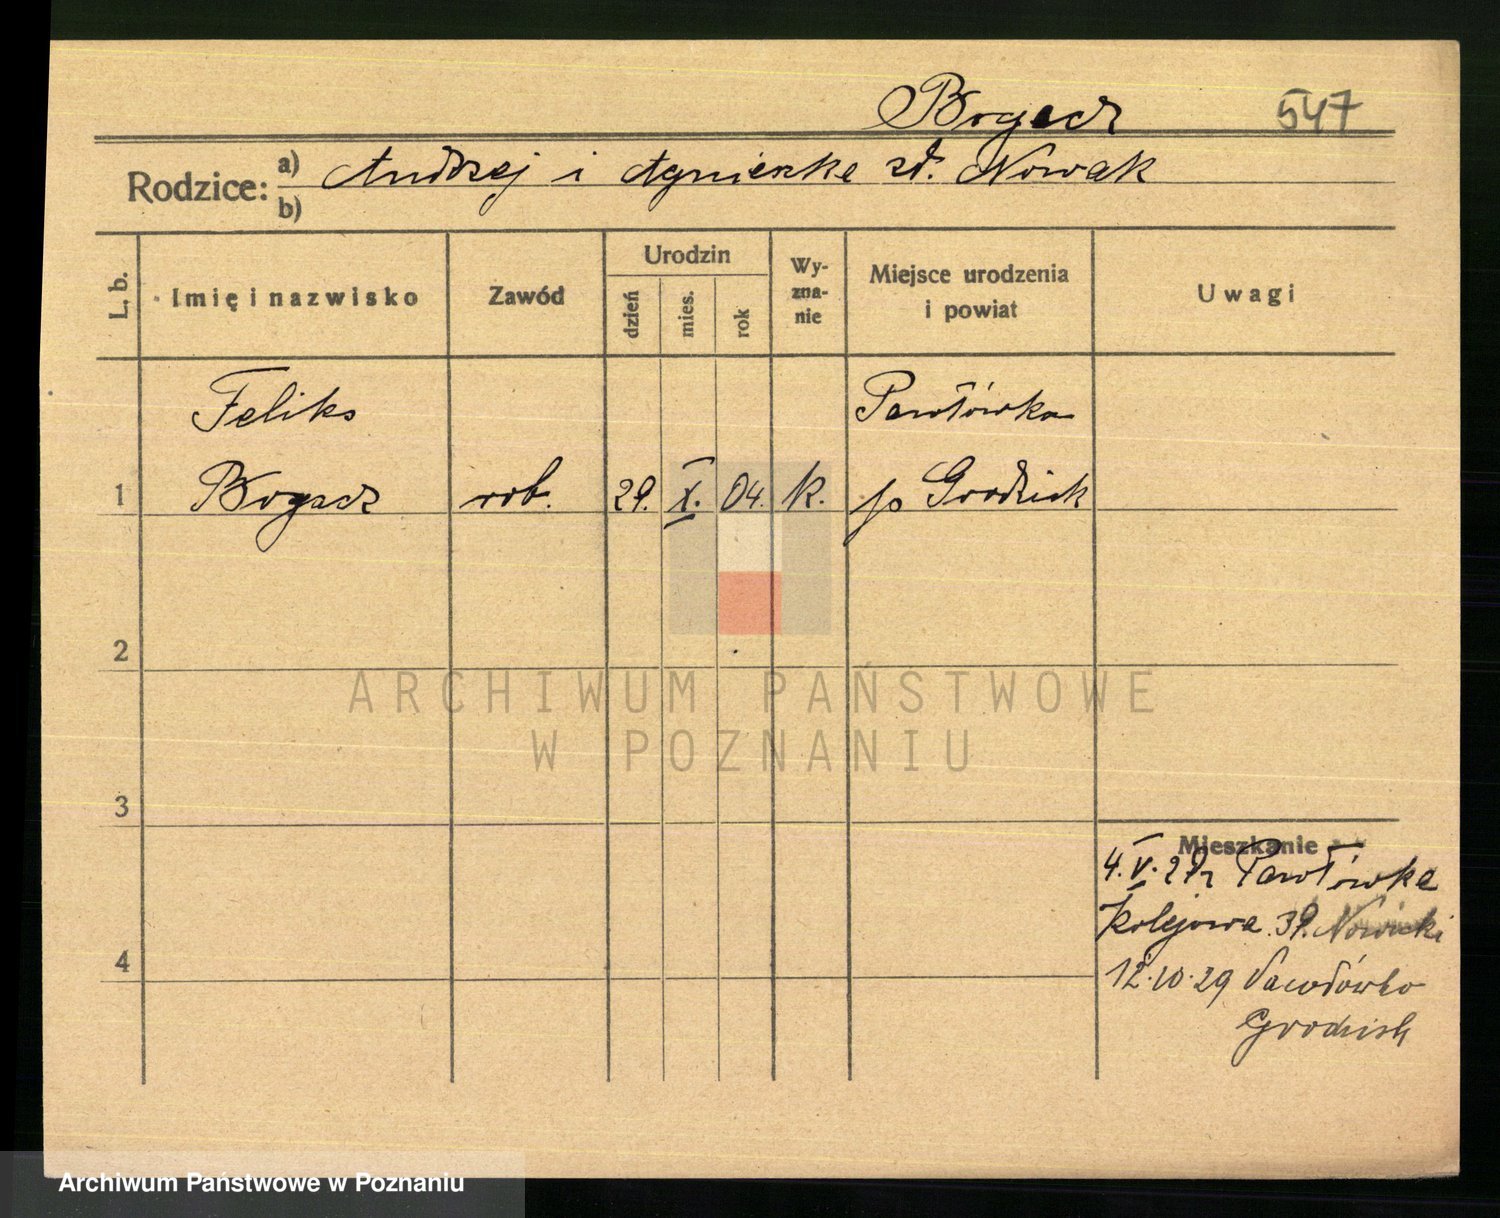 Bogacz 547
Rodzice: a) Andrzej i Agnieszka zd. Nowak
b)
L. b.
Imię i nazwisko
Zawód
Urodzin
dzień
mies.
rok
Wy-
zna-
nie
Miejsce urodzenia
i powiat
Uwagi
Feliks Pawłówka
1 Bogacz rob. 29. X. 04. k. p Grodzisk
2
ARCHIWUM PAŃSTWOWE
W POZNANIU
3
Mieszkanie
4. V. 29 r Pawłówka
Kolejowa 39. Nowicki
4
12.10.29 Pawłówko
Grodzisk
Archiwum Państwowe w Poznaniu